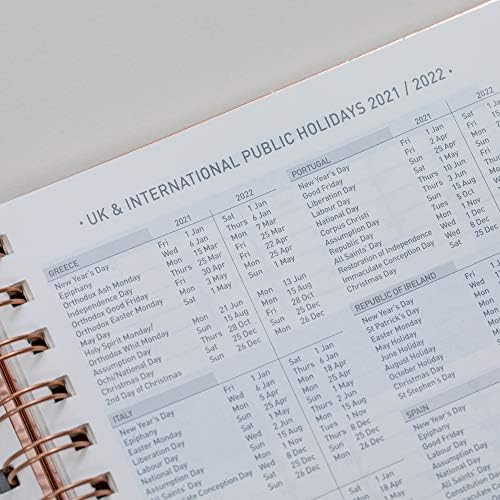 • UK & INTERNATIONAL PUBLIC HOLIDAYS 2021 / 2022 •
2021 2022
GREECE
New Year's Day Fri 1 Jan Sat 1 Jan
Epiphany Wed 6 Jan Thurs 6 Jan
Orthodox Ash Monday Mon 15 Mar Mon 7 Mar
Independence Day Thurs 25 Mar Fri 25 Mar
Orthodox Good Friday Fri 30 Apr Fri 22 Apr
Orthodox Easter Monday Mon 3 May Mon 25 Apr
May Day Sat 1 May Sun 1 May
Holy Spirit Monday/
Orthodox Whit Monday Mon 21 Jun Mon 13 Jun
Assumption Day Sun 15 Aug Mon 15 Aug
Ochi/National Day Thurs 28 Oct Fri 28 Oct
Christmas Day Sat 25 Dec Sun 25 Dec
2nd Day of Christmas Sun 26 Dec Mon 26 Dec
ITALY
New Year's Day Fri 1 Jan Sat 1 Jan
Epiphany Wed 6 Jan Thurs 6 Jan
Easter Monday Mon 5 Apr Mon 18 Apr
Liberation Day Sun 25 Apr Mon 25 Apr
Labour Day Sat 1 May Sun 1 May
National Day Wed 2 Jun Thurs 2 Jun
Assumption Day Sun 15 Aug Mon 15 Aug
All Saints' Day Mon 1 Nov
Immaculate Conception Day Wed 8 Dec
2021 2022
PORTUGAL
New Year's Day Fri 1 Jan Sat
Good Friday Fri 2 Apr Fri
Liberation Day Sun 25 Apr Mon
Labour Day Sat 1 May Sun
National Day Thurs 10 Jun Fri
Corpus Christi Thurs 3 Jun
Assumption Day Sun 15 Aug
Republic Day Tues 5 Oct
All Saints' Day Mon 1 Nov
Restoration of Independence Wed 1 Dec
Immaculate Conception Day Wed 8 Dec
Christmas Day Sat 25 Dec
REPUBLIC OF IRELAND
New Year's Day
St Patrick's Day
Easter Monday
May Holiday
June Holiday
August Holiday
October Holiday
Christmas Day
St Stephen's Day
SPAIN
New Year's Day
Epiphany
Good Friday
Labour Day
Assumption Day
National Day
All Saints' Day
Constitution